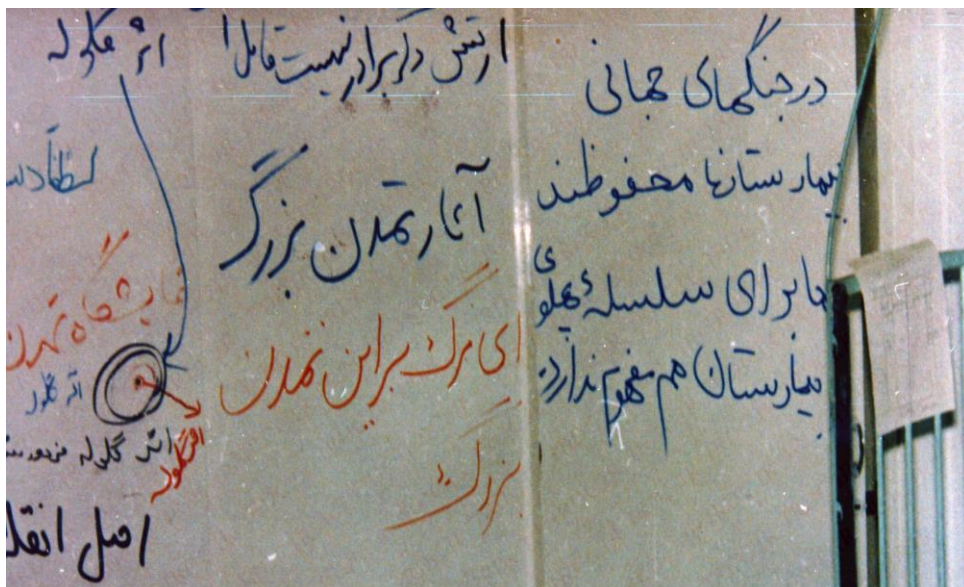 در جنگهای جهانی
بیمارستانها محفوظند
اما برای سلسلهٔ پهلوی
بیمارستان هم مفهوم ندارد.
ارتش دگر برادر نیست قاتل
آثار تمدن بزرگ
ای مرگ بر این تمدن
بزرگ
اثر گلوله
نمایشگاه تمدن
اثر گلوله
اثر گلوله
اثر گلوله
اصل انقلا